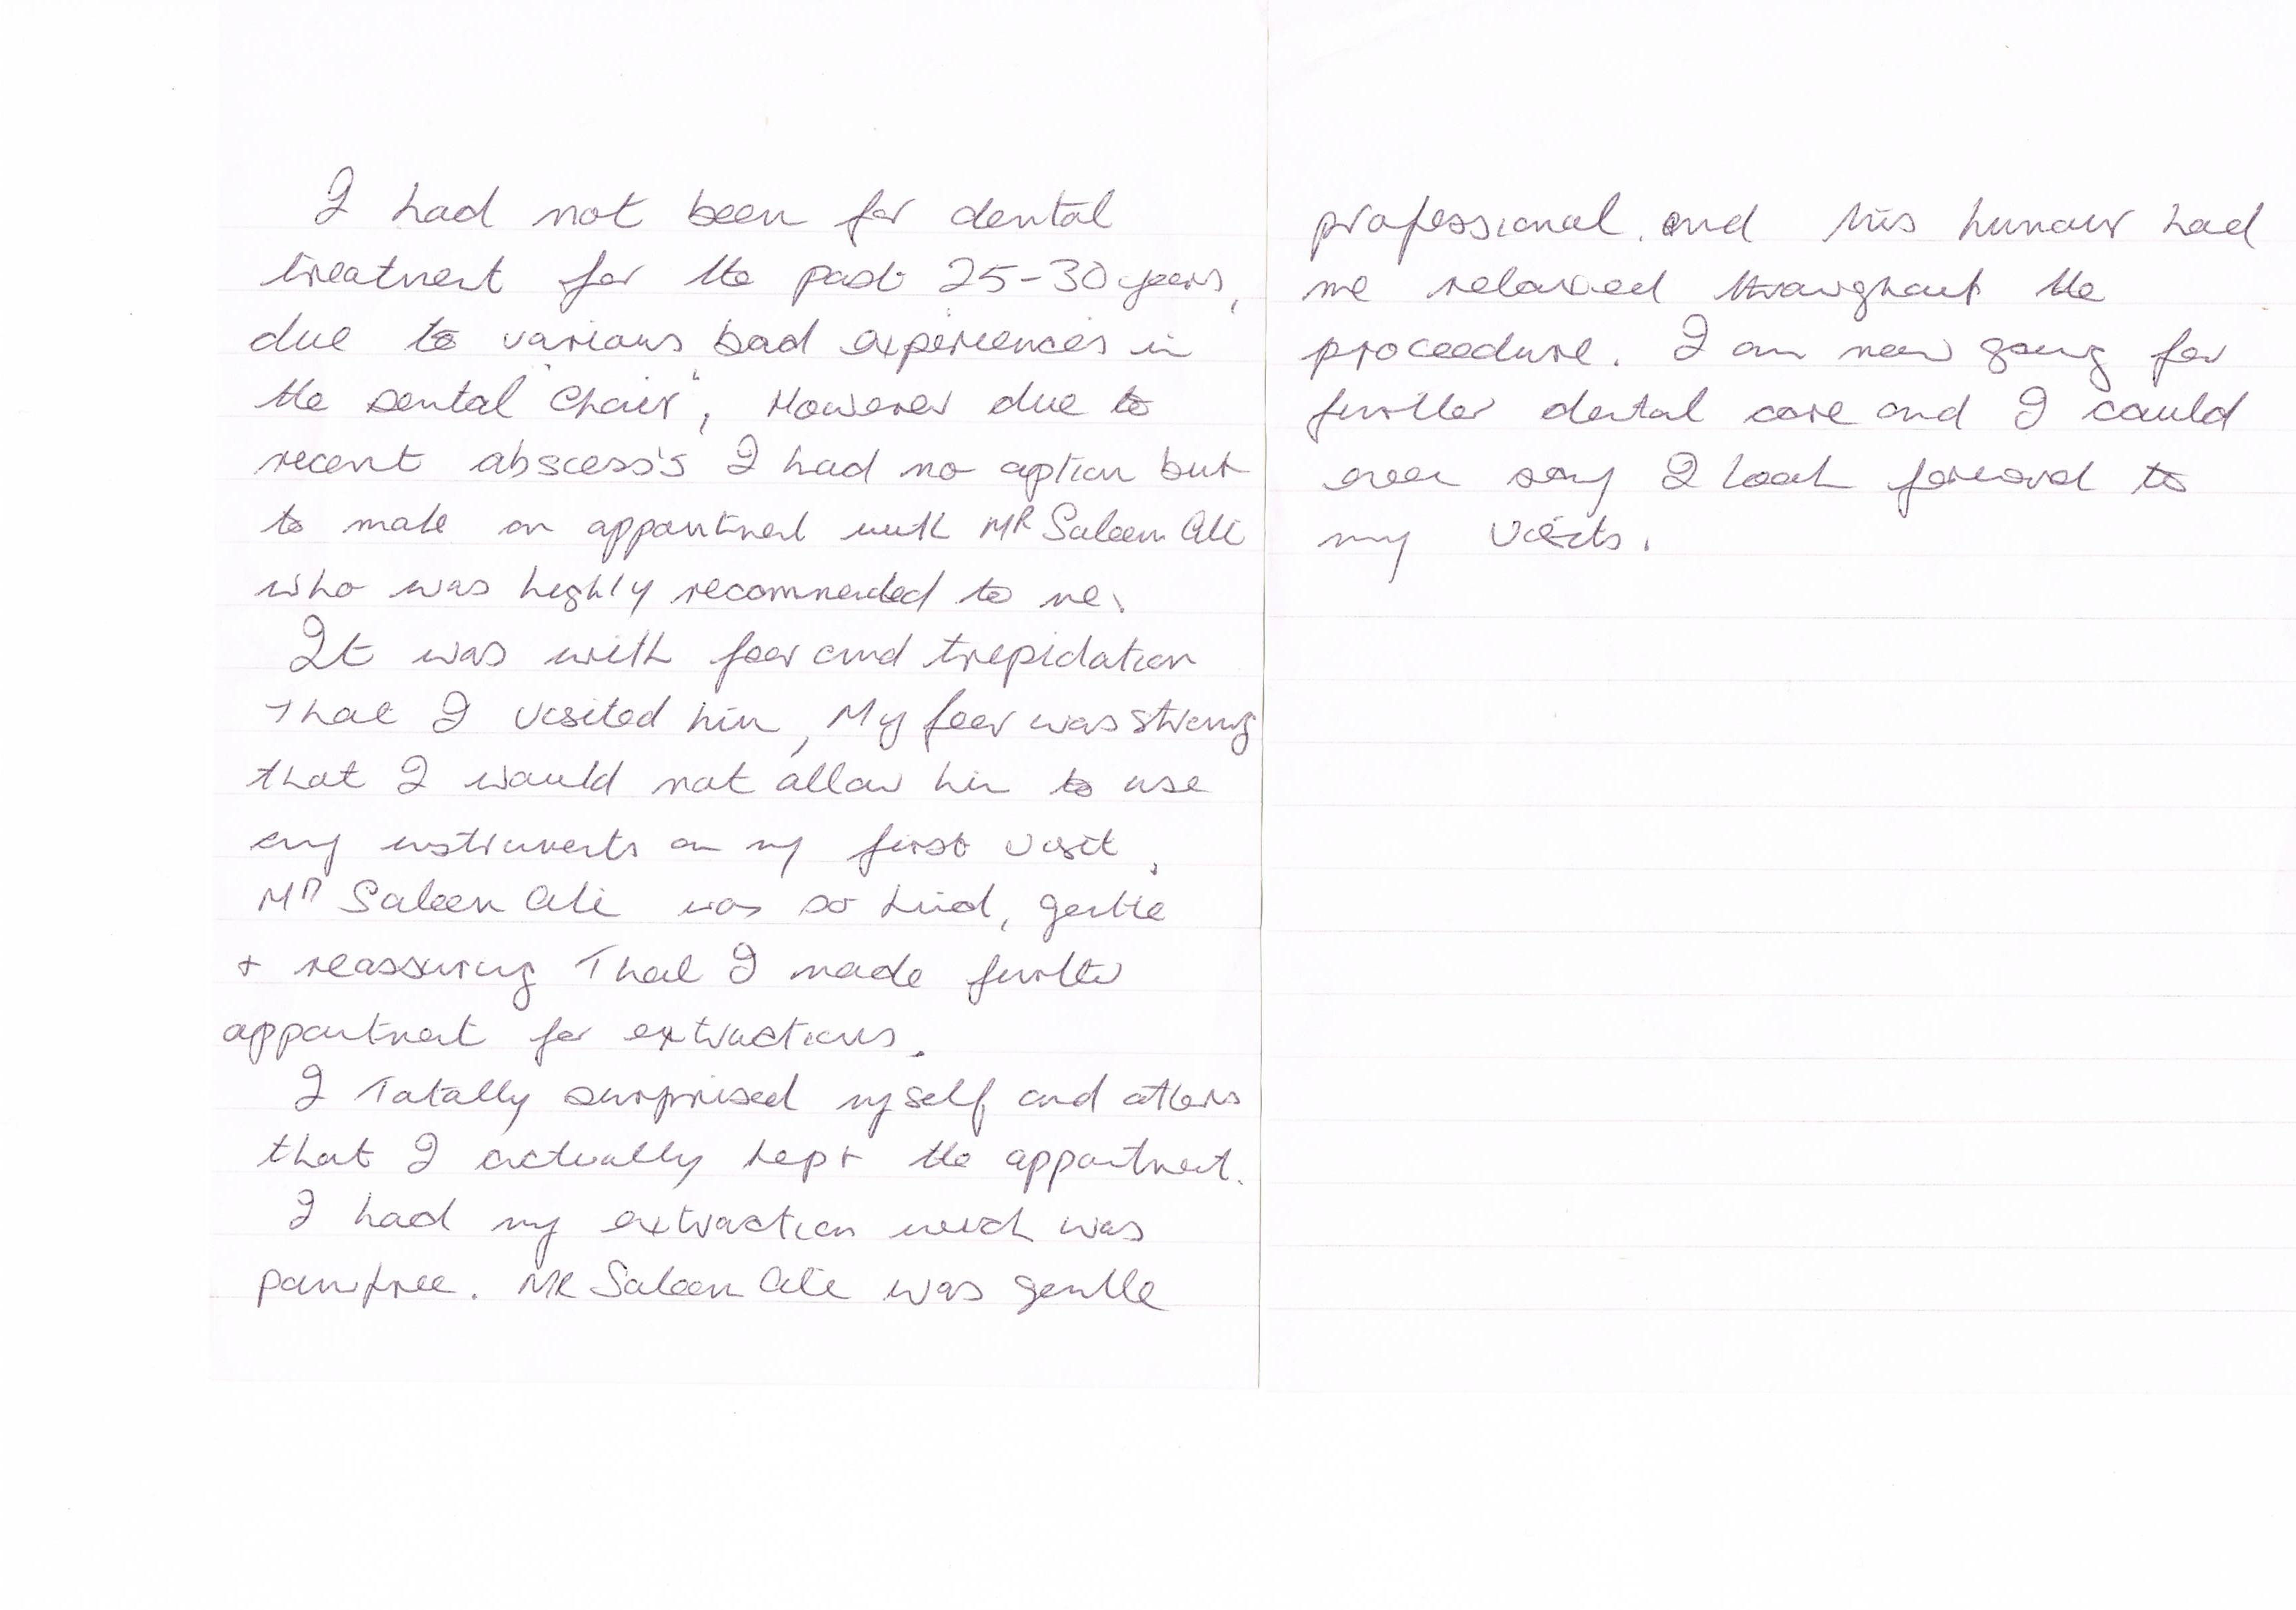 I had not been for dental
treatment for the past 25-30 years,
due to various bad experiences in
the dental "chair", However due to
recent abscess's I had no option but
to make an appointment with MR Saleem Ali
who was highly recommended to me.
It was with fear and trepidation
that I visited him, My fear was strong
that I would not allow him to use
any instruments on my first visit.
MR Saleem Ali was so kind, gentle
+ reassuring That I made further
appointment for extractions.
I Totally surprised myself and others
that I actually kept the appointment.
I had my extraction wich was
painfree. MR Saleem Ali was gentle
professional and his humour had
me relaxed throughout the
proceedure. I am now going for
further dental care and I could
even say I look forward to
my visits.